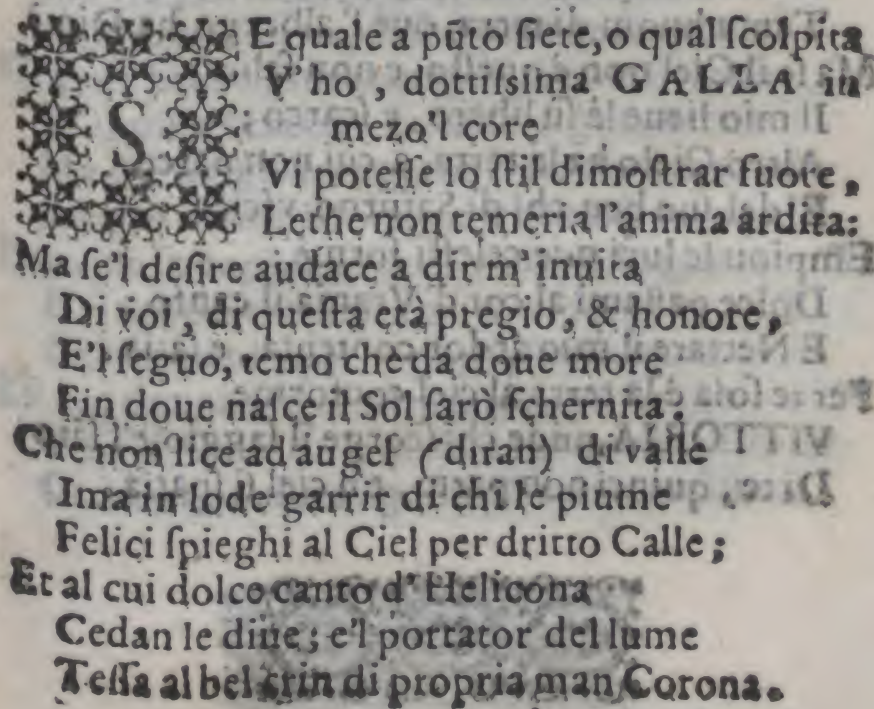 SE quale a pūto ſiete, o qual ſcolpita
V'ho, dottiſsima GALLA in
mezo'l core
Vi poteſſe lo ſtil dimoſtrar fuore,
Lethe non temeria l'anima ardita:
Ma ſe'l deſire audace à dir m'inuita
Di voi, di queſta età pregio, & honore,
E'l ſeguo, temo che da doue more
Fin doue naſce il Sol ſarò ſchernita.
Che non lice ad augel (diran) di valle
Ima in lode garrir di chi le piume
Felici ſpieghi al Ciel per dritto Calle;
Et al cui dolce canto d'Helicona
Cedan le diue; e'l portator del lume
Teſſa al bel crin di propria man Corona.